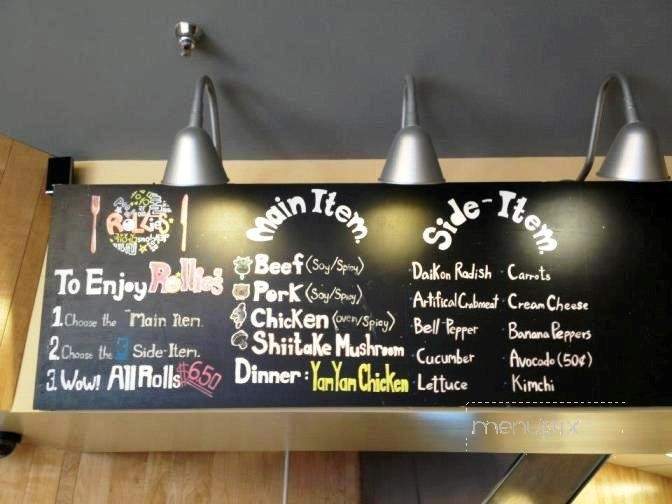 RoLLies
To Enjoy Rollies
1. Choose the Main Item.
2. Choose the 3 Side-Item.
3. Wow! All Rolls $6.50
Main Item.
Beef (Soy/Spicy)
Pork (Soy/Spicy)
Chicken (oven/Spicy)
Shiitake Mushroom
Dinner: Yam Yam Chicken
Side-Item.
Daikon Radish
Artifical Crabmeat
Bell-Pepper
Cucumber
Lettuce
Carrots
Cream Cheese
Banana Peppers
Avocado (50¢)
Kimchi
menupix